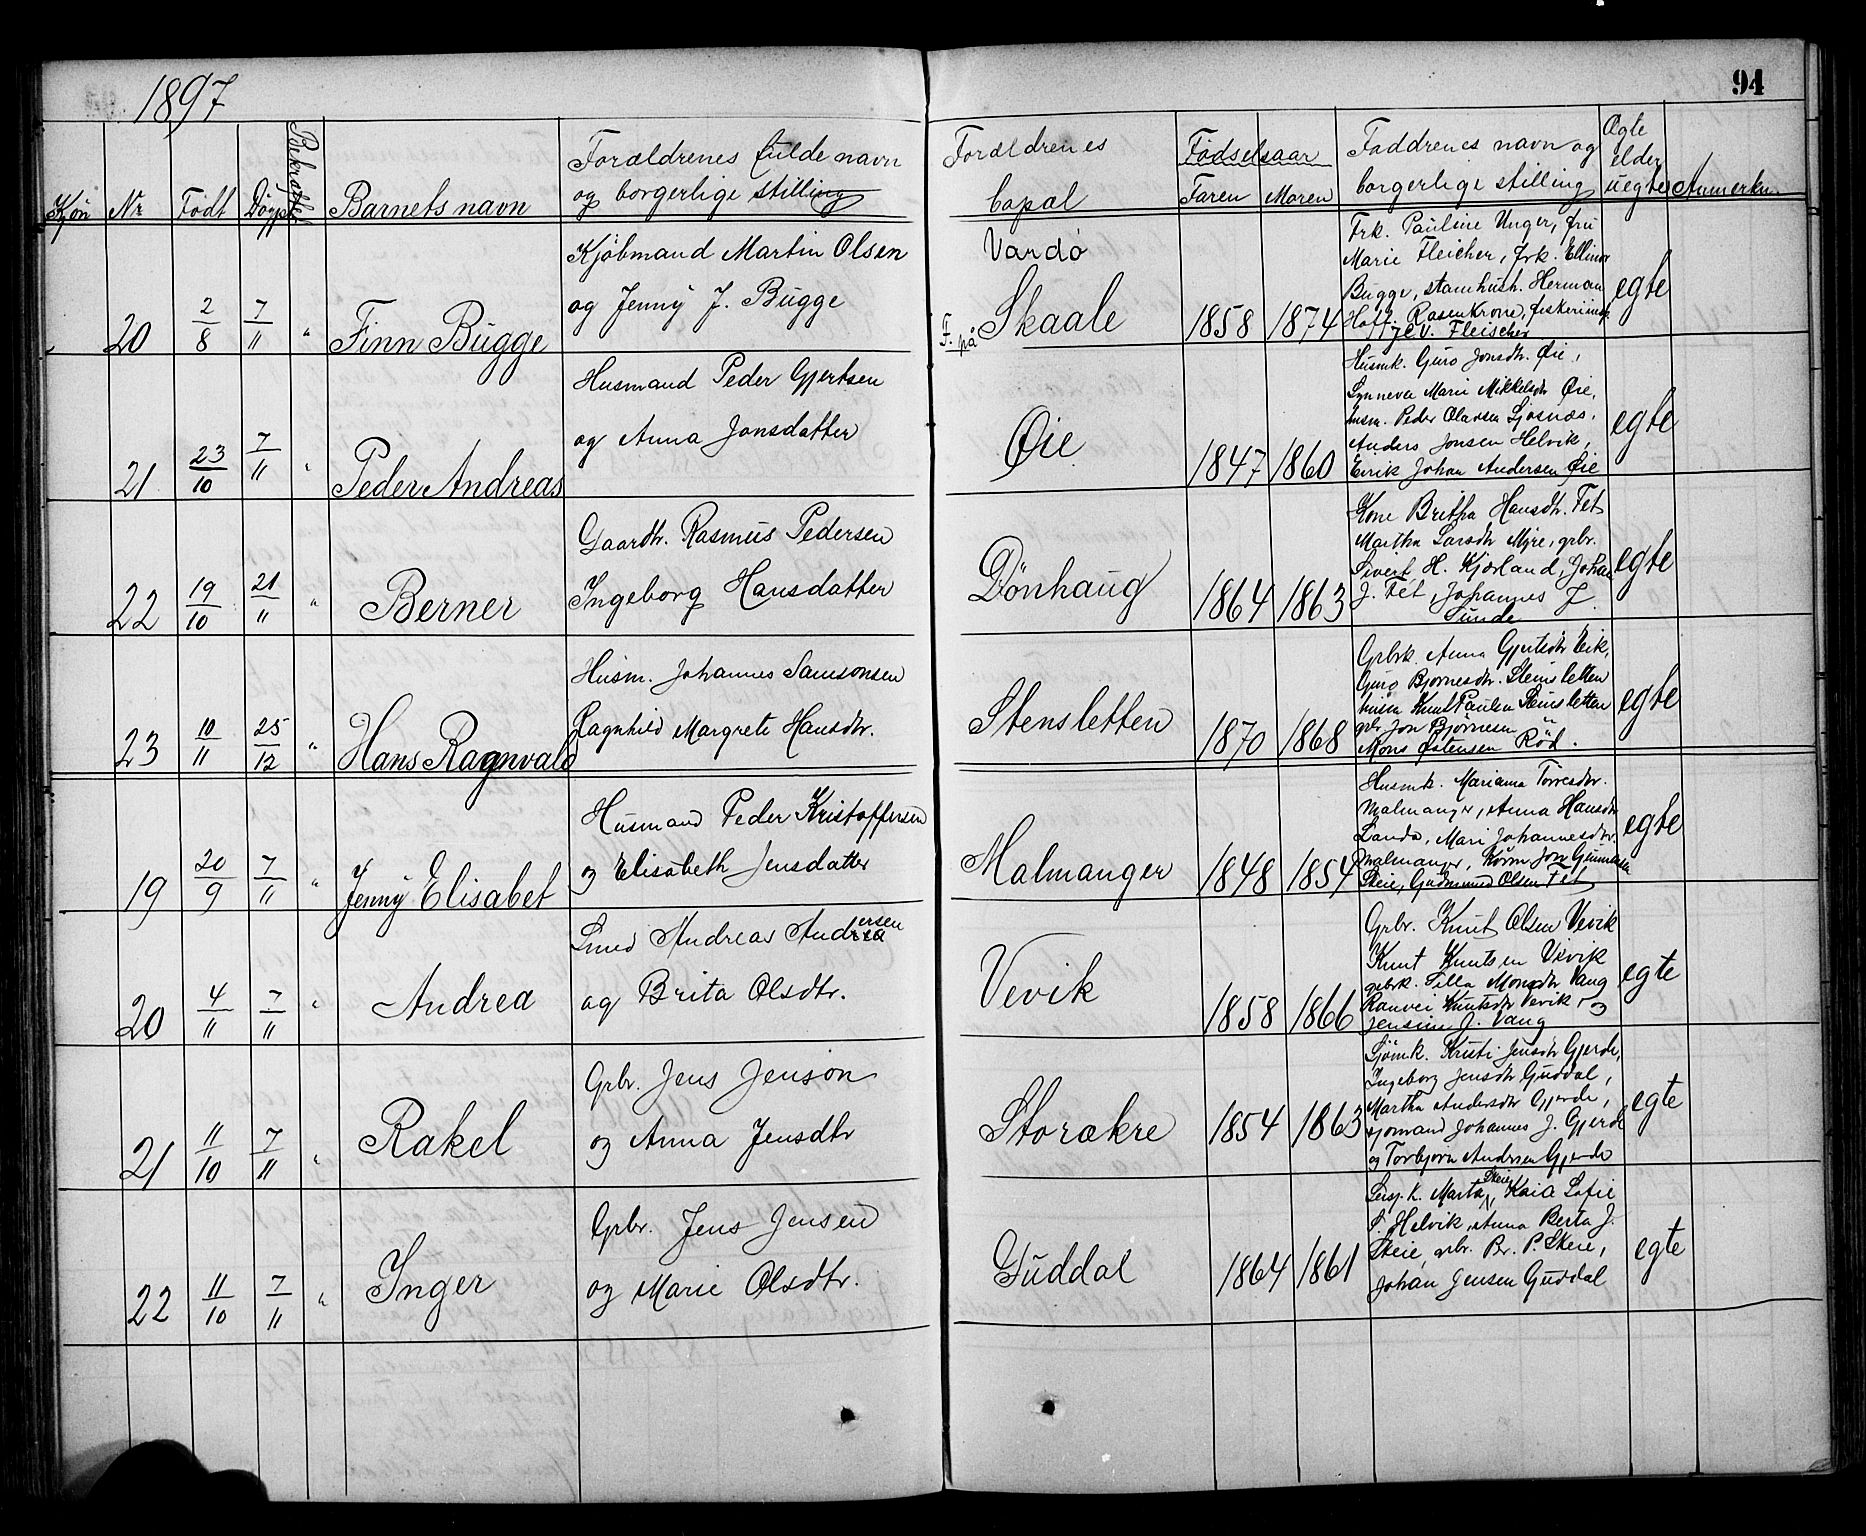 1897
94
Kjön Nr Födt Döypt Bekræftet Barnets navn Forældrenes fulde navn og borgerlige stilling Forældrenes bopæl Fødselsaar Faren Moren Faddrenes navn og borgerlige stilling Ægte elder uegte Anmerkn.
20 2/8 7/11 " Finn Bugge
Kjøbmand Martin Olsen
og Jenny J. Bugge
Vardø
F. på Skaale 1858 1874
Frk. Pauline Unger, fru
Marie Fleicher, frk. Ellina
Bugge, stamhush. Herman
Hoff. Rosenkrone, fiskeriinsp.
J.C.V. Fleischer
egte
21 23/10 7/11 " Peder Andreas
Husmand Peder Gjertsen
og Anna Jonsdatter
Øie 1847 1860
Husmk. Guro Jonsdtr. Øie,
Synneva Marie Mikkelsdtr Øie,
husm. Peder Olavsen Sjosnæs.
Anders Jonsen Helvik,
Eirik Johan Andersen Øie
egte
22 19/10 21/11 " Berner
Gaardbr. Rasmus Pedersen
Ingeborg Hansdatter
Dönhaug 1864 1863
Kone Britha Hansdtr. Fet
Martha Larsdtr Myre, grbr.
Sivert H. Kjærland, Johan
J. Fet, Johannes J.
Sunde
egte
23 10/11 25/12 " Hans Ragnvald
Husm. Johannes Samsonsen
Ragnhild Margrete Hansdtr.
Stensletten 1870 1868
Grbrk. Anna Gjertsdtr Eik,
Guro Bjornesdtr. Steinsletten
husm Knut Paulsen Steinsletten
grbr Jon Bjørnesen "
Mons Østensen Röd.
egte
19 20/9 7/11 " Jenny Elisabet
Husmand Peder Kristoffersen
og Elisabeth Jensdatter
Malmanger 1848 1854
Husmk. Marianna Torresdtr.
Malmanger, Anna Hansdtr
Landa, Mari Johannesdtr.
Malmanger, Jon
Skeie, Gudmund Olsen Fet
egte
20 4/11 7/11 " Andrea
Smed Andreas Andersen
og Brita Olsdtr.
Vevik 1858 1866
Grbr. Knut Olsen Vevik
Knut Knutsen Vevik
grbrk. Silla Monsdtr Vang
Ranvei Knutsdtr Vevik og
Jensine J. Vang
egte
21 11/10 7/11 " Rakel
Grbr. Jens Jenson
og Anna Jensdtr
Storækre 1854 1863
Sjömk. Kristi Jensdtr Gjerde,
Ingeborg Jensdtr Guddal,
Martha Andersdtr Gjerde,
sjømand Johannes J. Gjerde
og Torbjorn Andersen Gjerde
egte
22 11/10 7/11 " Inger
Grbr. Jens Jensen
og Marie Olsdtr.
Guddal 1864 1861
Marta Skeie, Kaia Sofie
S. Helvik, Anna Berta J.
Skeie, grbr. Br. P. Skeie,
Johan Jensen Guddal
egte